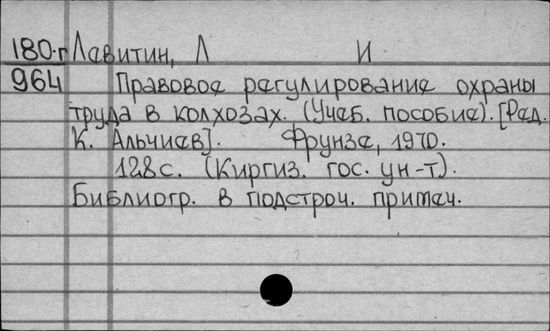 180-г Лавитин, Л И
964 Правовое регулирование охраны
труда в колхозах. (Учеб. пособие). [Ред.
К. Альчиев]. Фрунзе, 1970.
128 с. (Киргиз. гос. ун-т).
Библиогр. в подстроч. примеч.